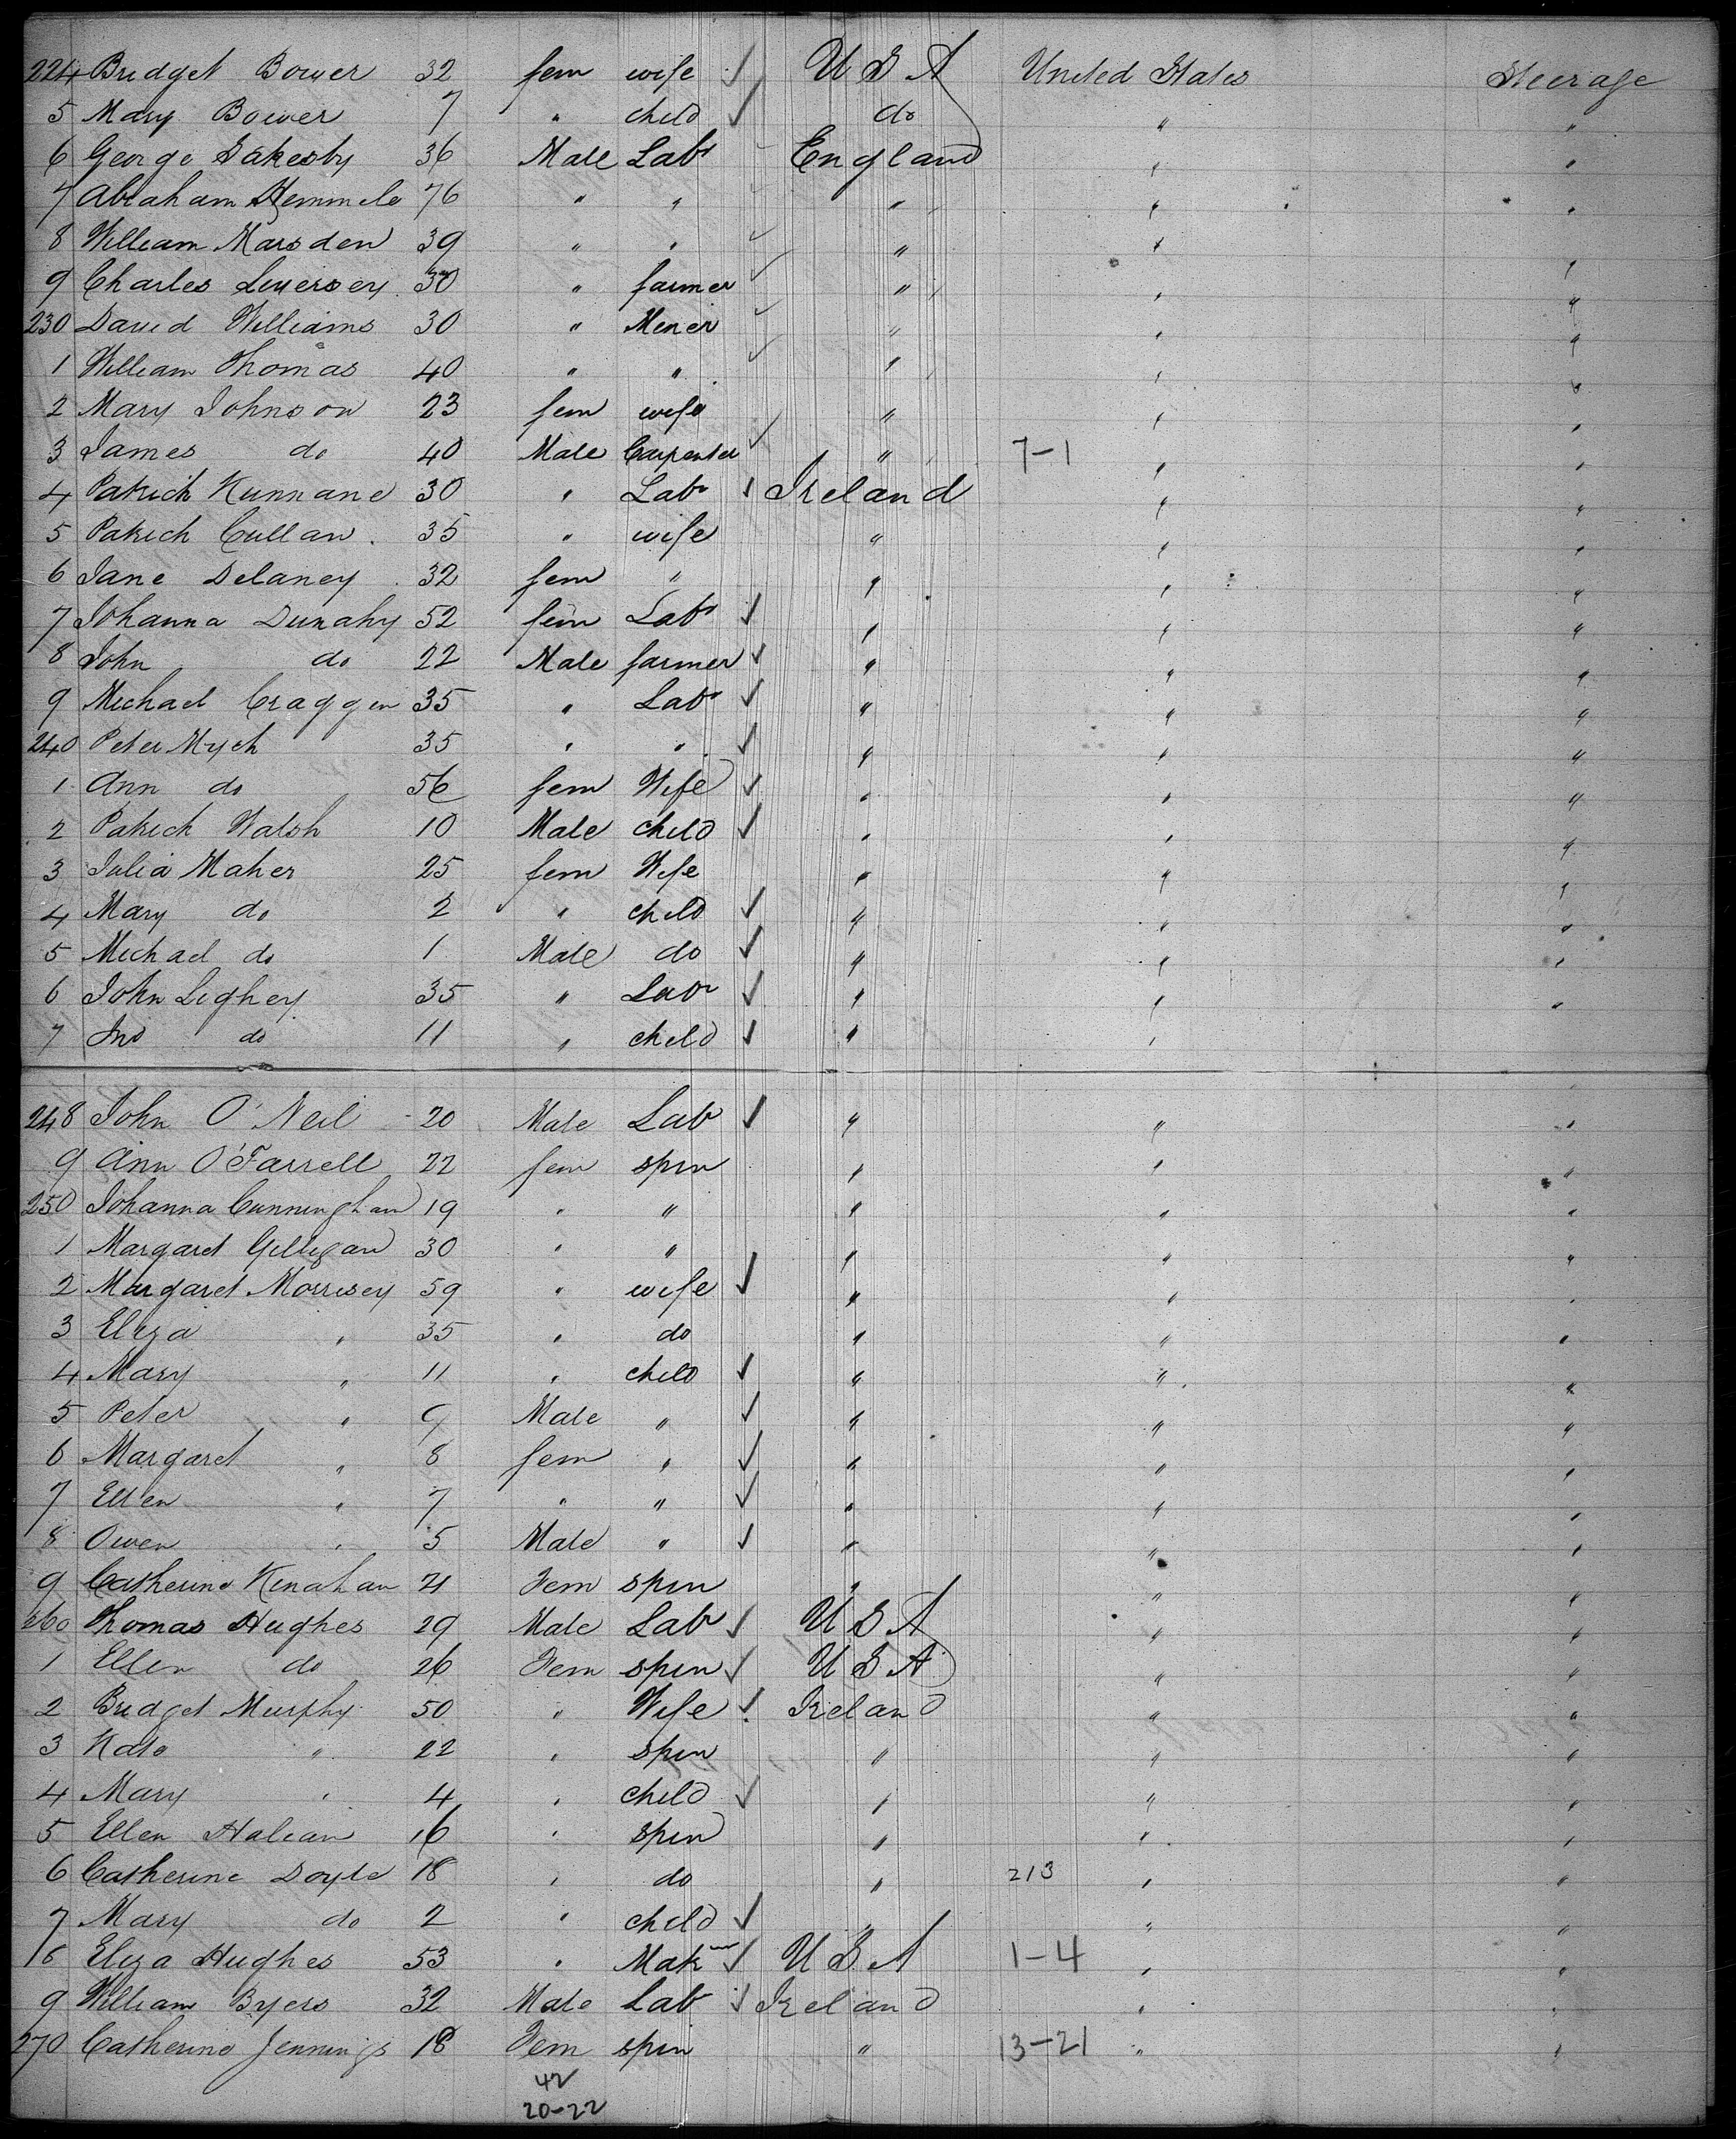 224 Bridget Bower 32 fem wife ✓ U S A United States Steerage
5 Mary Bower 7 " child ✓ do " "
6 George Sakesby 36 Male Labr ✓ England " "
7 Abraham Hemmele 76 " " ✓ " " "
8 William Marsden 39 " " ✓ " " "
9 Charles 30 " farmer ✓ " " "
230 David Williams 30 " Miner ✓ " " "
1 William Thomas 40 " " ✓ " " "
2 Mary Johnson 23 fem wife " " "
3 James do 40 Male Carpenter ✓ " 7-1 " "
4 Patrick Kunnane 30 " Labr ✓ Ireland " "
5 Patrick Cullan 35 " wife " " "
6 Jane Delaney 32 fem " " " "
7 Johanna Dunahy 52 fem Labr ✓ " " "
8 John do 22 Male farmer ✓ " " "
9 Michael Craggin 35 " Labr ✓ " " "
240 Peter Mych 35 " " ✓ " " "
1 Ann do 56 fem Wife ✓ " " "
2 Patrick Walsh 10 Male child ✓ " " "
3 Julia Maher 25 fem Wife " " "
4 Mary do 2 " child ✓ " " "
5 Michael do 1 Male do ✓ " " "
6 John Lighey 35 " Labr ✓ " " "
7 Jno do 11 " child ✓ " " "
248 John O'Neil 20 Male Lab ✓ " " "
9 Ann O'Farrell 22 fem spin " " "
250 Johanna Cunningham 19 " " " " "
1 Margaret Gilligan 30 " " " " "
2 Margaret Morrisey 59 " wife ✓ " " "
3 Eliza " 35 " do " " "
4 Mary " 11 " child ✓ " " "
5 Peter " 9 Male " ✓ " " "
6 Margaret " 8 fem " ✓ " " "
7 Ellen " 7 " " ✓ " " "
8 Owen " 5 Male " ✓ " " "
9 Catherine Kinahan 21 Fem spin " " "
260 Thomas Hughes 29 Male Labr ✓ U S A " "
1 Ellen do 26 Fem spin ✓ U S A " "
2 Bridget Murphy 50 " Wife ✓ Ireland " "
3 Kate " 22 " spin " " "
4 Mary " 4 " child ✓ " " "
5 Ellen Halian 16 " spin " " "
6 Catherine Doyle 18 " do " 213 " "
7 Mary do 2 " child ✓ " " "
8 Eliza Hughes 53 " ✓ U S A 1-4 " "
9 William Byers 32 Male Lab ✓ Ireland " "
270 Catherine Jennings 18 Fem spin " 13-21 " "
42
20-22